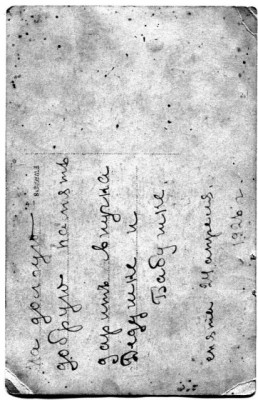 На долгую
добрую память
дарить внучка
Дедушке и
Бабушке.
снята 24 апреля.
1926 г.